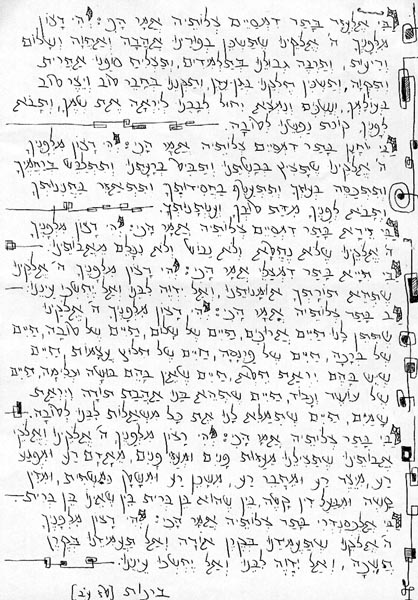 רבי אלעזר בתר דמסיים צלותיה אמר הכי: יהי רצון
מלפניך ה' אלקינו שתשכן בפורינו אהבה ואחוה ושלום
וריעות, ותרבה גבולנו בתלמידים, ותצליח סופנו אחרית
ותקוה, ותשים חלקנו בגן עדן, ותקננו בחבר טוב ויצר טוב
בעולמך, ונשכים ונמצא יחול לבבנו ליראה את שמך, ותבא
לפניך קורת נפשנו לטובה.
רבי יוחנן בתר דמסיים צלותיה אמר הכי: יהי רצון מלפניך
ה' אלקינו שתציץ בבשתנו ותביט ברעתנו ותתלבש ברחמיך
ותתכסה בעזך ותתעטף בחסידותך ותתאזר בחנינותך
ותבא לפניך מדת טובך וענותנותך.
רבי זירא בתר דמסיים צלותיה אמר הכי: יהי רצון מלפניך
ה' אלקינו שלא נחטא ולא נבוש ולא נכלם מאבותינו.
רבי חייא בתר דמצלי אמר הכי: יהי רצון מלפניך ה' אלקינו
שתהא תורתך אומנותנו, ואל ידוה לבנו ואל יחשכו עינינו.
רב בתר צלותיה אמר הכי: יהי רצון מלפניך ה' אלקינו
שתתן לנו חיים ארוכים, חיים של שלום, חיים של טובה, חיים
של ברכה, חיים של פרנסה, חיים של חלוץ עצמות, חיים
שיש בהם יראת חטא, חיים שאין בהם בושה וכלימה, חיים
של עושר וכבוד, חיים שתהא בנו אהבת תורה ויראת
שמים, חיים שתמלא לנו את כל משאלות לבנו לטובה.
רבי בתר צלותיה אמר הכי: יהי רצון מלפניך ה' אלקינו ואלקי
אבותינו שתצילנו מעזות פנים ומעזי פנים, מאדם רע ומפגע
רע, מיצר רע ומחבר רע, משכן רע ומשטן המשחית, ומדין
קשה ומבעל דין קשה, בין שהוא בן ברית בין שאינו בן ברית
רבי אלכסנדרי בתר צלותיה אמר הכי: יהי רצון מלפניך
ה' אלקינו שתעמידנו בקרן אורה ואל תעמידנו בקרן
חשכה, ואל ידוה לבנו ואל יחשכו עינינו.
ברכות [טז ע"ב]